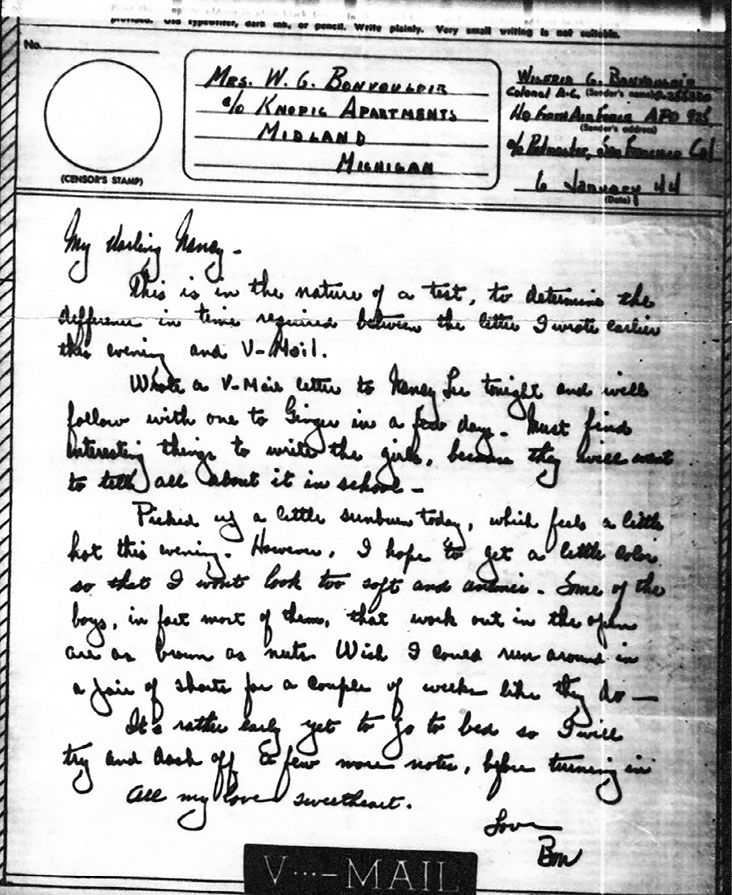 provided. Use typewriter, dark ink, or pencil. Write plainly. Very small writing is not suitable.
No.
(CENSOR'S STAMP)
Mrs. W. G. Bonvouloir
c/o Knopig Apartments
Midland
Michigan
G. Bonvouloir
Colonel A.C. (Sender's name)
Hq Air Force APO
(Sender's address)
c/o Postmaster, San Francisco Cal
6 January 44
(Date)
My darling Nancy -
This is in the nature of a test, to determine the
difference in time required between the letter I wrote earlier
this evening and V-Mail.
Wrote a V-Mail letter to Nancy Lee tonight and will
follow with one to Ginger in a few days. Must find
interesting things to write the girls, because they will want
to tell all about it in school -
Picked up a little sunburn today, which feels a little
hot this evening. However, I hope to get a little color
so that I wont look too soft and anemic. Some of the
boys, in fact most of them, that work out in the open
are as brown as nuts. Wish I could run around in
a pair of shorts for a couple of weeks like they do -
It's rather early yet to go to bed so I will
try and dash off a few more notes, before turning in
All my love sweetheart.
Love
Bon
V···-MAIL